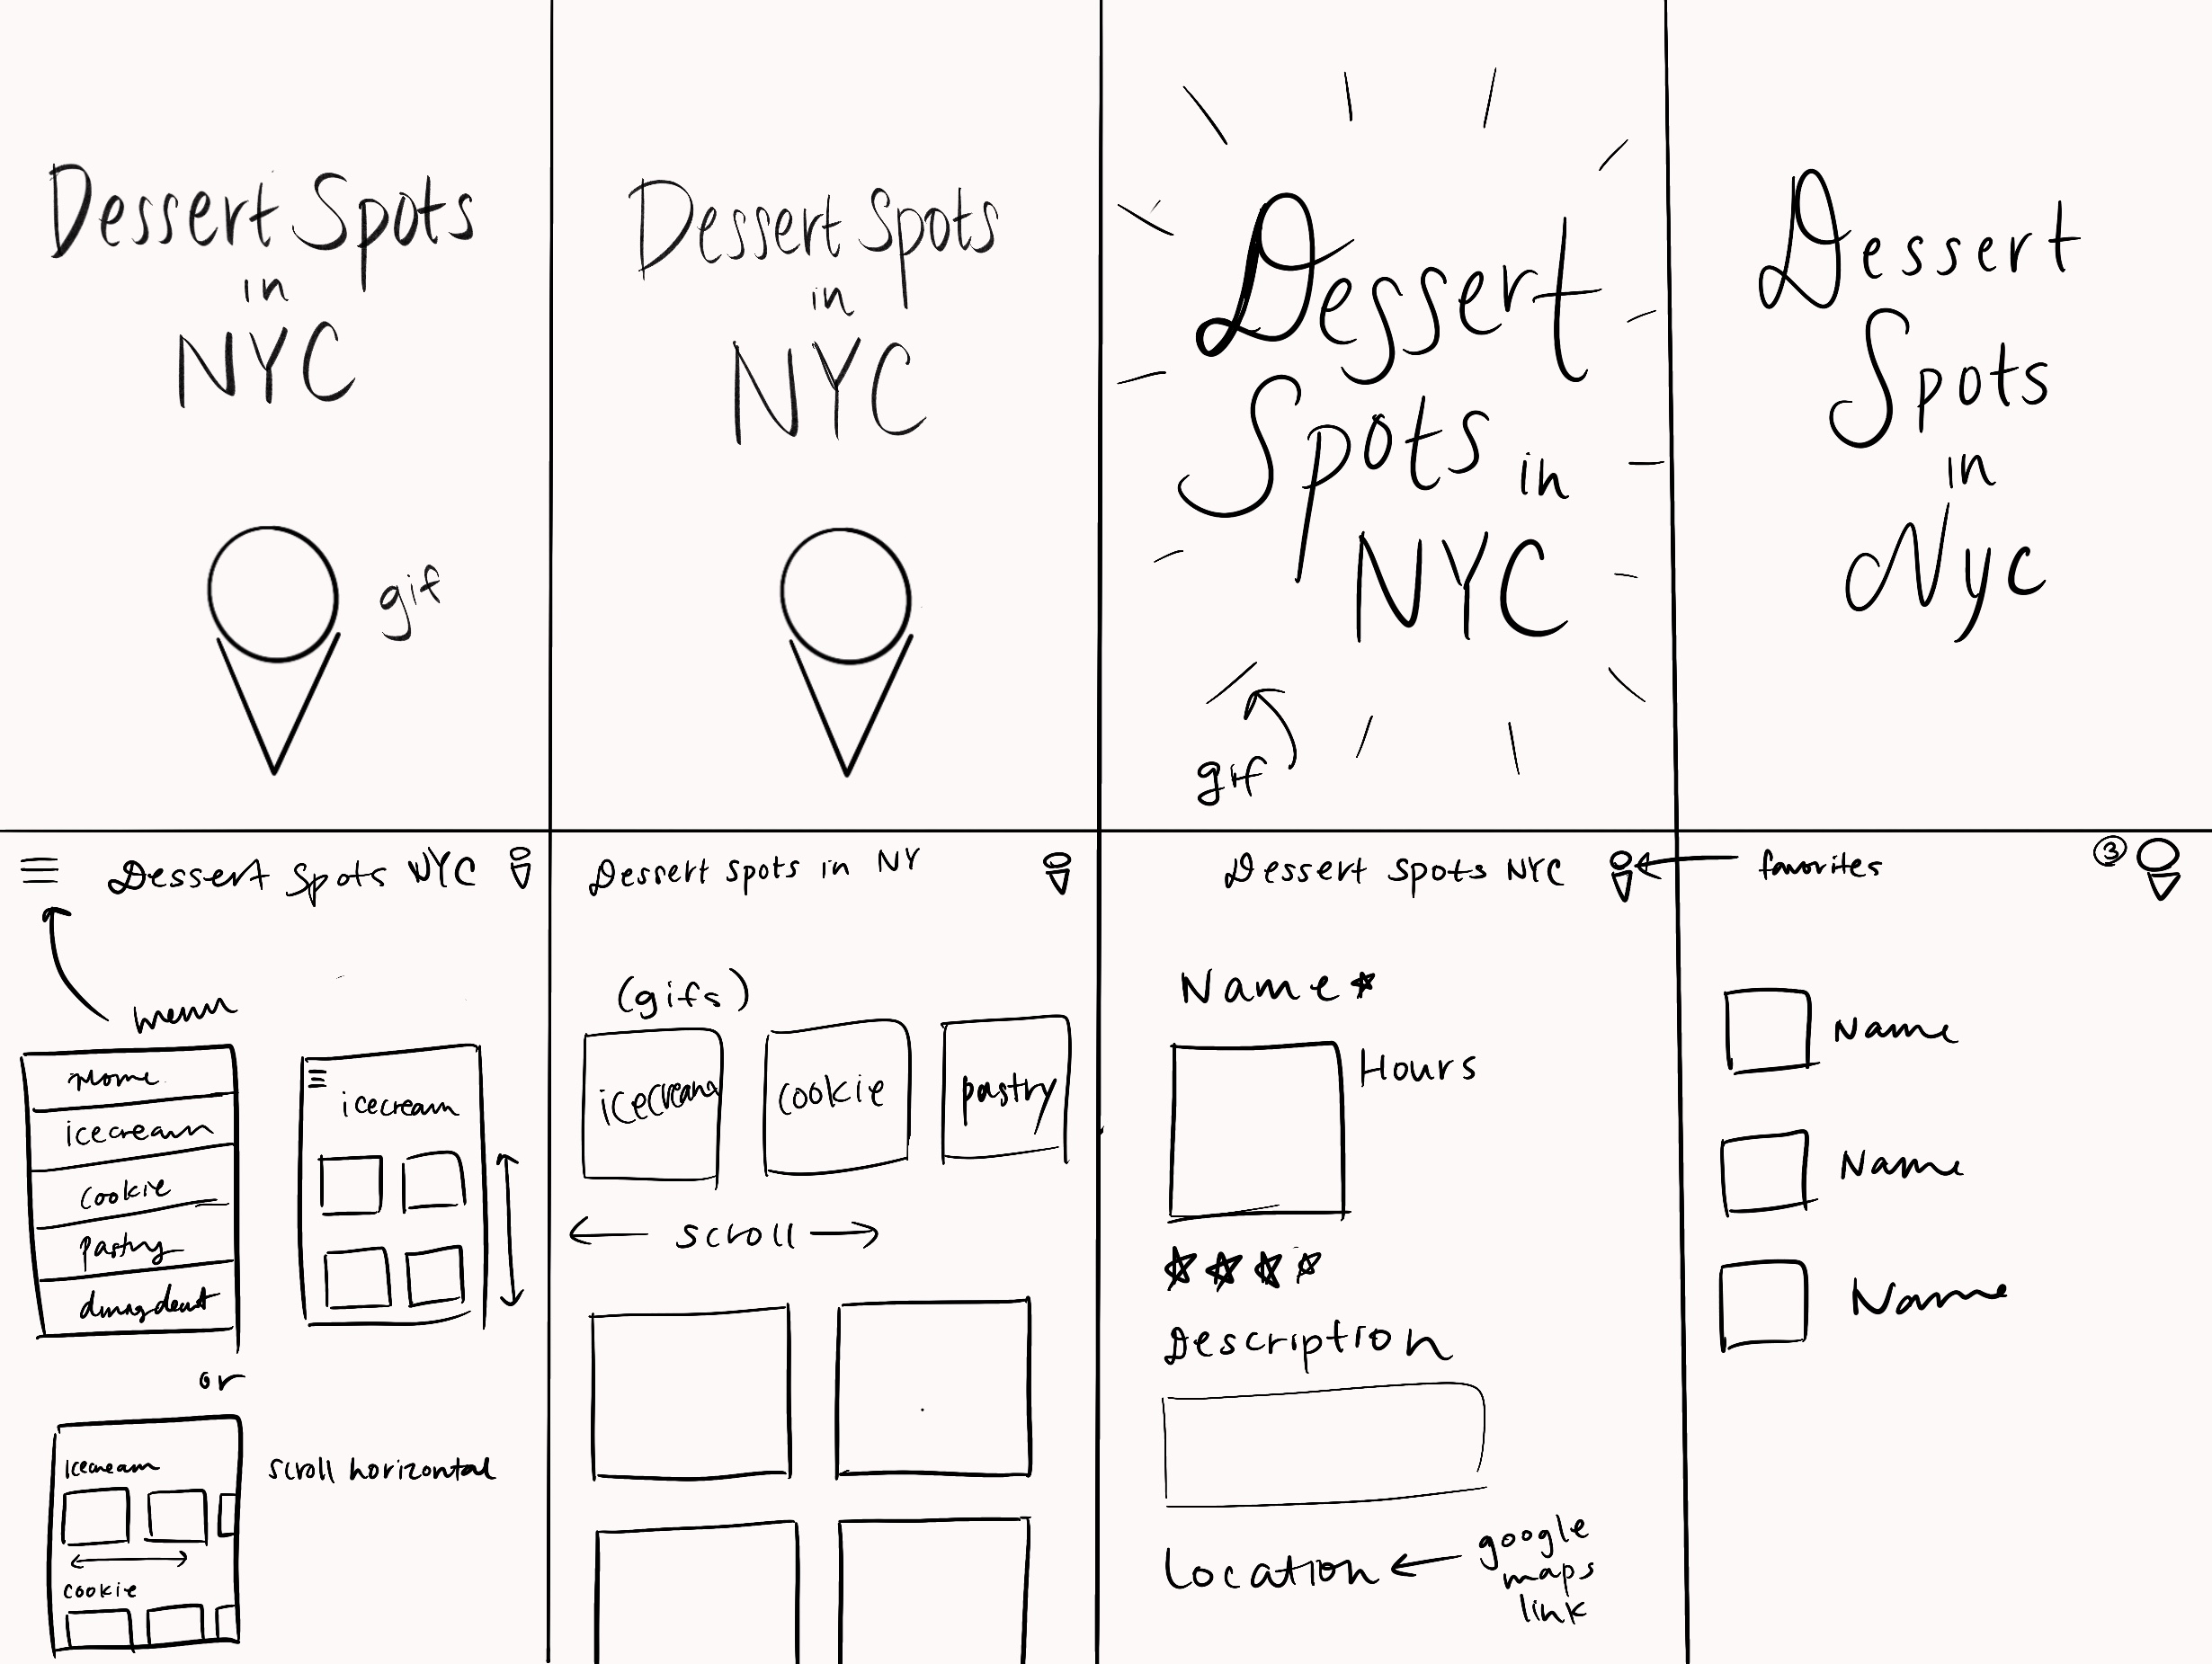 Dessert Spots
in
NYC
gif
Dessert Spots
in
NYC
Dessert
Spots in
NYC
gif
Dessert
Spots
in
NYC
Dessert Spots NYC
menu
Home
icecream
cookie
pastry
icecream
or
Icecream
scroll horizontal
cookie
Dessert spots in NY
(gifs)
icecream
cookie
pastry
← scroll →
Dessert spots NYC
Name ★
Hours
★★★☆
Description
Location ← google
maps
link
favorites
3
Name
Name
Name